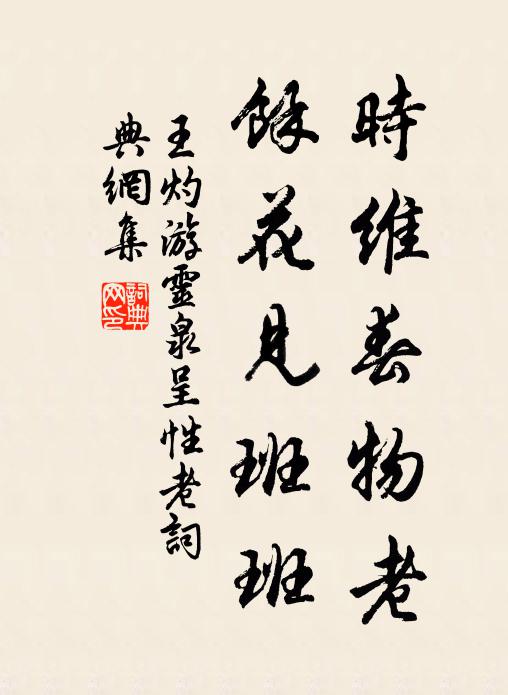 時維春物老
餘花見班班
王灼游靈泉呈性老詞
典網集
詞典網印